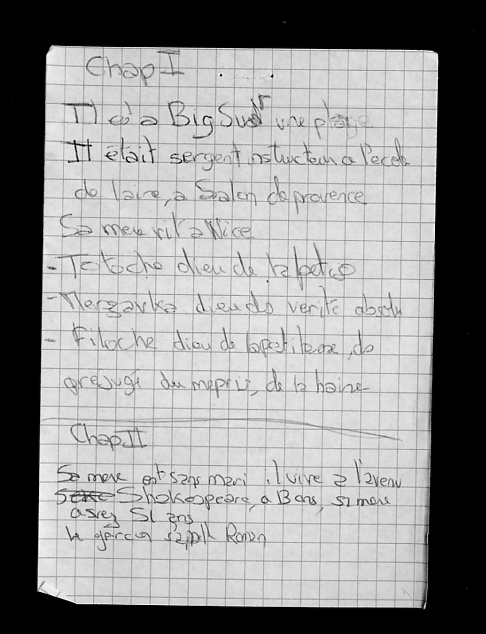 Chap I
Il é a Big Sur une plage
Il était sergent instructeur a l'ecole
de l'aire, a Salon de provence
Sa mere vit a Nice
- Totoche dieu de la betise
- Merzavka dieu de verité absolu
- Filoche dieu de la petitesse, de
prejugé du mepris, de la haine
Chap II
Sa mere est sans mari il vive a l'avenu
Shakespeare, a 13 ans, sa mere
51 ans
le garcon s'appelle Roman